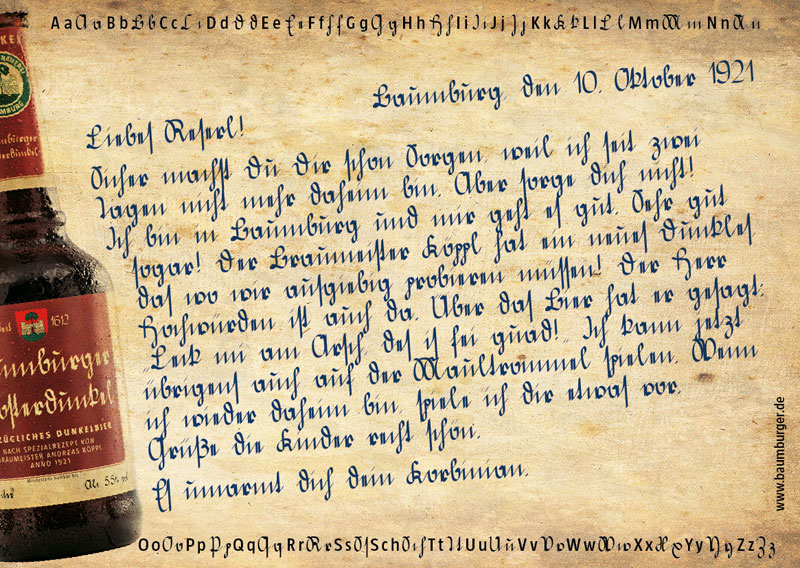 AaBbCcDdEeFfGgHhIiJjKkLlMmNn
Baumburg, den 10. Oktober 1921
Liebes Reserl!
Sicher machst Du Dir schon Sorgen, weil ich seit zwei
Tagen nicht mehr daheim bin. Aber sorge dich nicht!
Ich bin in Baumburg und mir geht es gut. Sehr gut
sogar! Der Braumeister Köppl hat ein neues Dunkles
das wo wir ausgiebig probieren müssen! Der Herr
Hochwürden ist auch da. Über das Bier hat er gesagt:
„Leck mi am Arsch, des is fei guad!" Ich kann jetzt
übrigens auch auf der Maultrommel spielen. Wenn
ich wieder daheim bin, spiele ich dir etwas vor.
Grüße die Kinder recht schön.
Es umarmt dich dein Korbinian.
1612
umburger
osterdunkel
ZÜGLICHES DUNKELBIER
NACH SPEZIALREZEPT VON
BRAUMEISTER ANDREAS KÖPPL
ANNO 1921
Alc. 5,5% vol
www.baumburger.de
OoPpQqRrSsSchTtUuVvWwXxYyZz